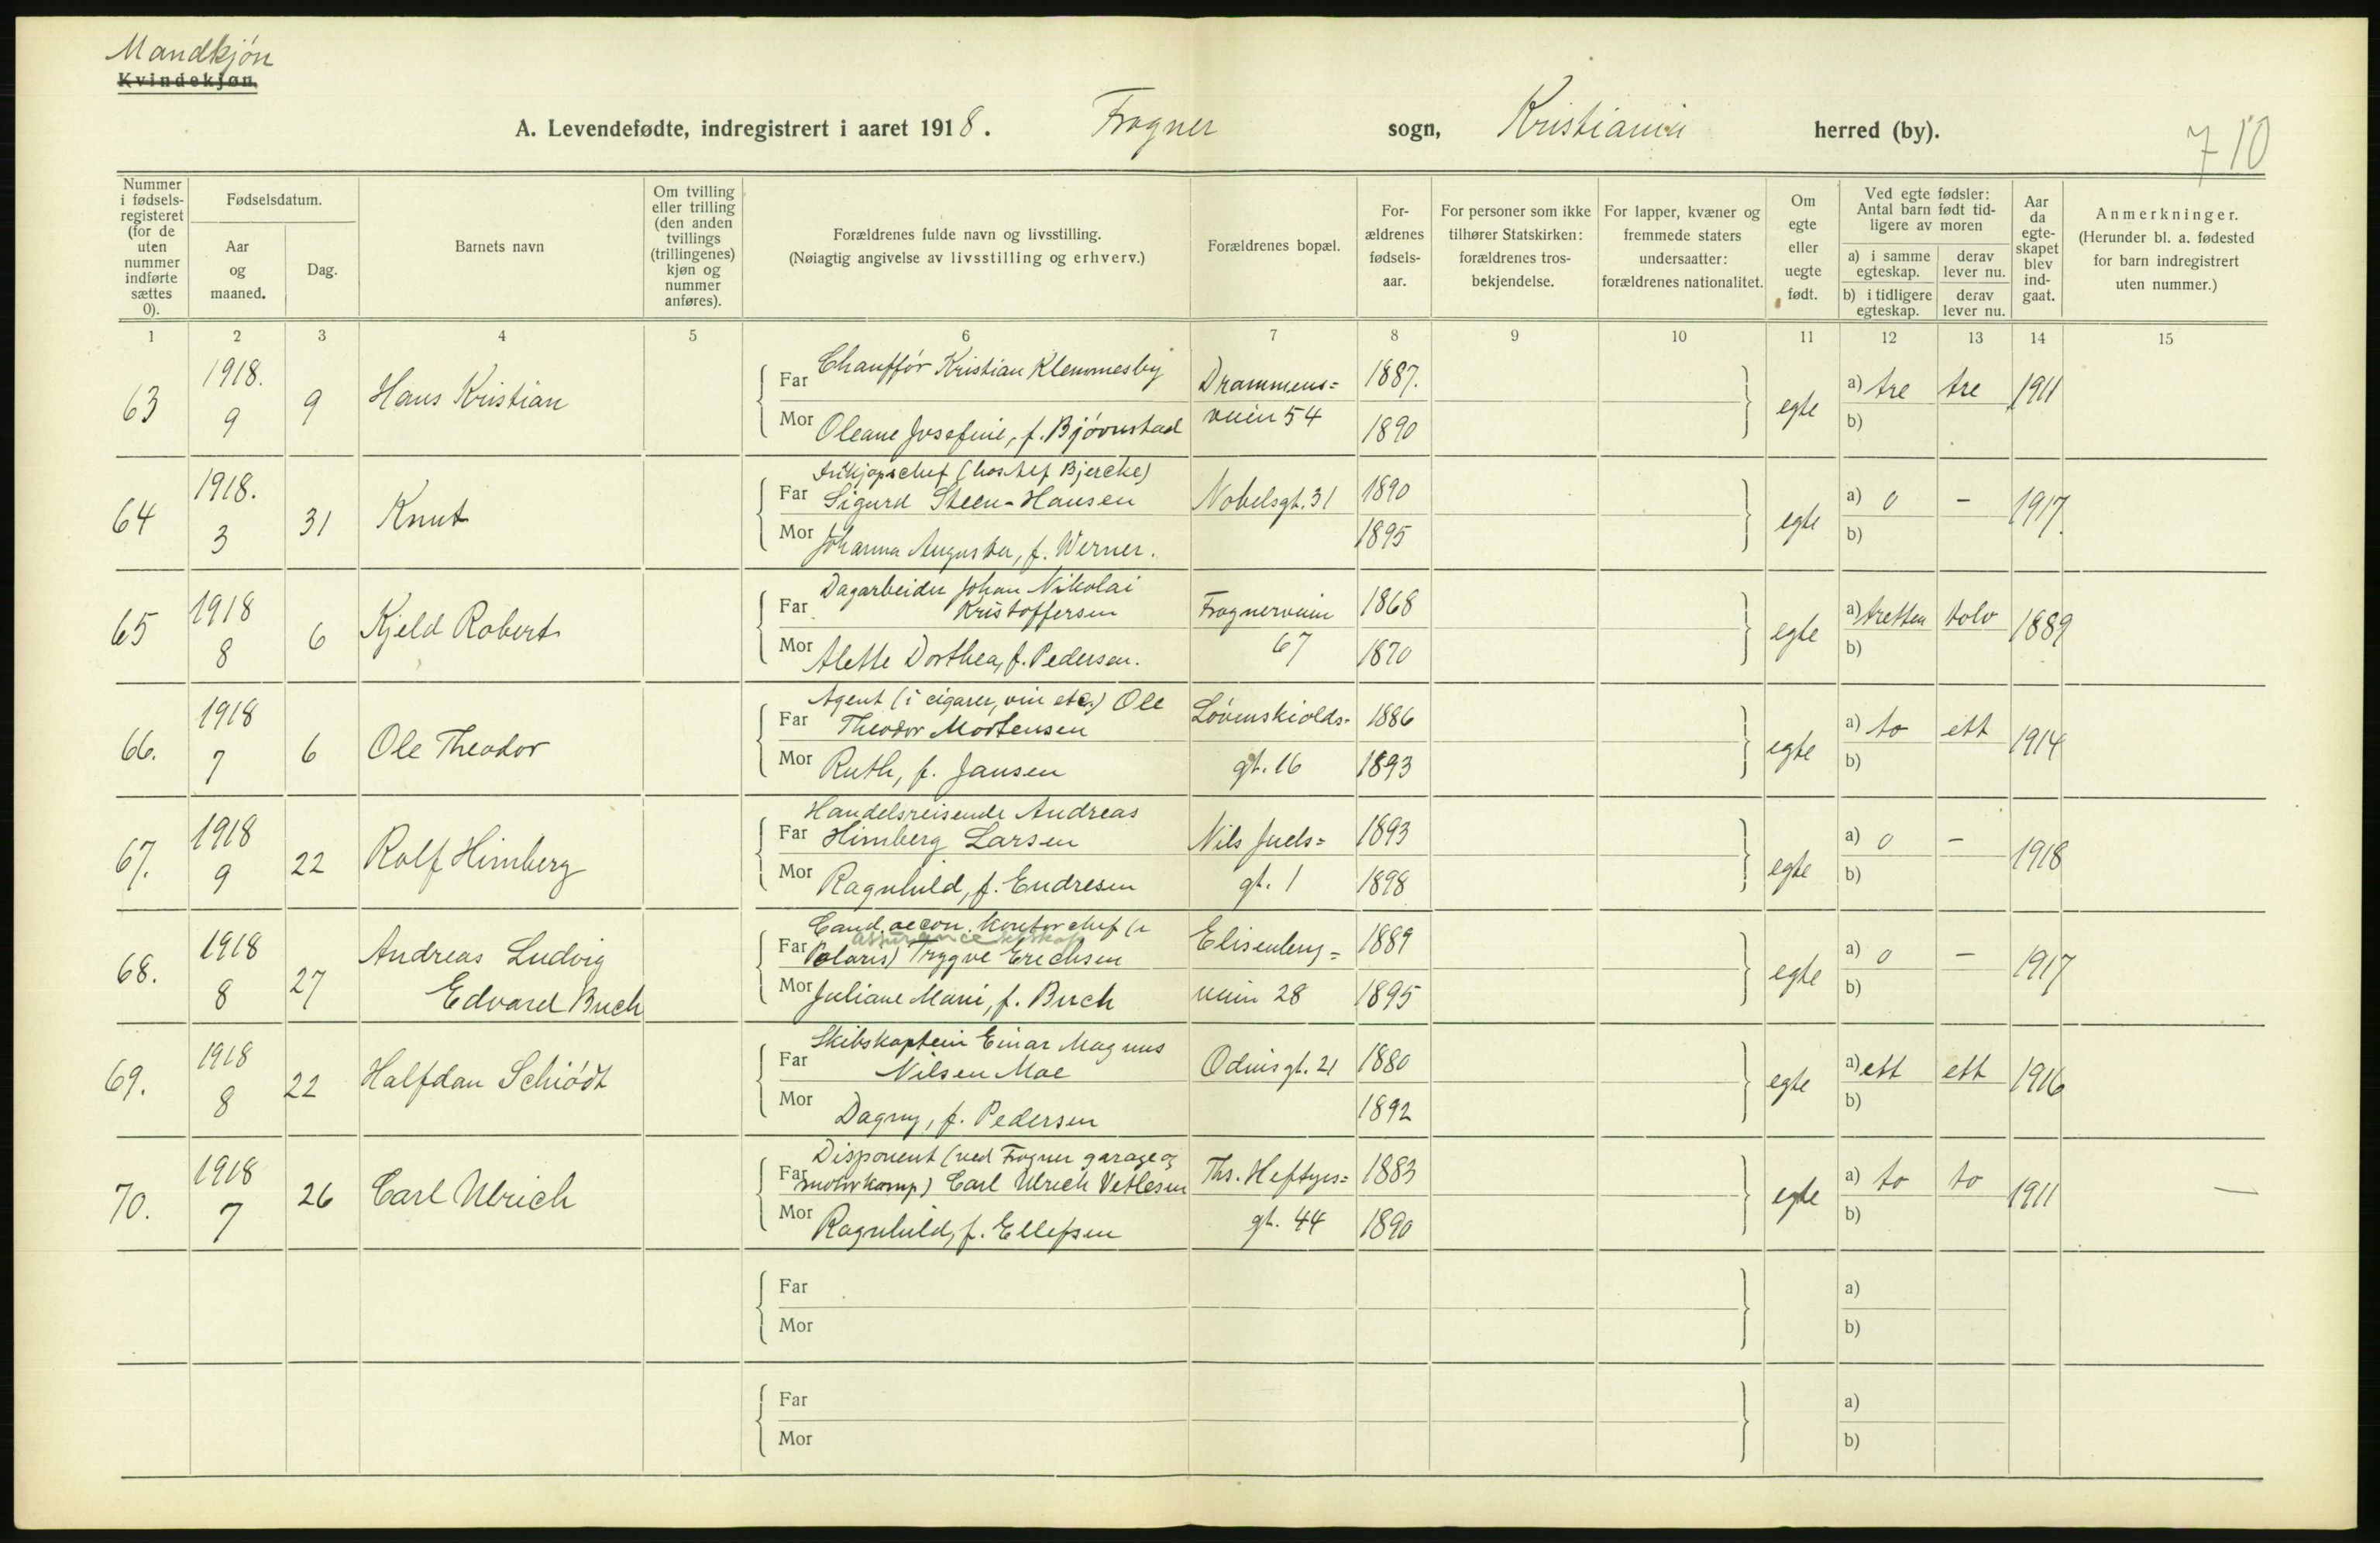 Mandkjøn
Kvindekjøn.
A. Levendefødte, indregistrert i aaret 1918. Frogner sogn, Kristiania herred (by).
710
Nummer i fødselsregisteret (for de uten nummer indførte sættes 0).
Fødselsdatum.
Aar og maaned.
Dag.
Barnets navn
Om tvilling eller trilling (den anden tvillings (trillingenes) kjøn og nummer anføres).
Forældrenes fulde navn og livsstilling.
(Nøiagtig angivelse av livsstilling og erhverv.)
Forældrenes bopæl.
Forældrenes fødselsaar.
For personer som ikke tilhører Statskirken: forældrenes trosbekjendelse.
For lapper, kvæner og fremmede staters undersaatter: forældrenes nationalitet.
Om egte eller uegte født.
Ved egte fødsler: Antal barn født tidligere av moren
a) i samme egteskap. derav lever nu.
b) i tidligere egteskap. derav lever nu.
Aar da egteskapet blev indgaat.
Anmerkninger.
(Herunder bl. a. fødested for barn indregistrert uten nummer.)
1 2 3 4 5 6 7 8 9 10 11 12 13 14 15
63 1918. 9 9 Hans Kristian
Far Chauffør Kristian Klemmesby Drammens= 1887.
Mor Oleane Josefine, f. Bjørnstad veien 54 1890
egte a) tre tre 1911
b)
64 1918. 3 31 Knut
Indkjøpschef (hos Alf Bjercke)
Far Sigurd Steen-Hansen Nobelsgt. 31 1890
Mor Johanna Augusta, f. Werner. 1895
egte a) 0 - 1917.
b)
65 1918 8 6 Kjeld Robert
Dagarbeider Johan Nikolai
Far Kristoffersen Frognerveien 1868
Mor Alette Dorthea, f. Pedersen. 67 1870
egte a) tretten tolv 1889
b)
66. 1918 7 6 Ole Theodor
Agent (i cigarer, vin etc.) Ole
Far Theodor Mortensen Løvenskiolds- 1886
Mor Ruth, f. Jansen gt. 16 1893
egte a) to ett 1914
b)
67. 1918 9 22 Rolf Himberg
Handelsreisende Andreas
Far Himberg Larsen Nils Juels= 1893
Mor Ragnhild, f. Endresen gt. 1 1898
egte a) 0 - 1918
b)
68. 1918 8 27 Andreas Ludvig
Edvard Buch
Cand. oecon. kontorchef (i
assuranceselskap
Far Polaris) Trygve Erichsen Elisenberg= 1889
Mor Juliane Marie, f. Buch veien 28 1895
egte a) 0 - 1917
b)
69. 1918 8 22 Halfdan Schiødt
Skibskaptein Einar Magnus
Far Nilsen Moe Odinsgt. 21 1880
Mor Dagny, f. Pedersen 1892
egte a) ett ett 1916
b)
70. 1918 7 26 Carl Ulrich
Disponent (ved Frogner garage og
Far motorkomp) Carl Ulrich Vetlesen Ths. Heftyes= 1883
Mor Ragnhild, f. Ellefsen gt. 44 1890
egte a) to to 1911 —
b)
Far a)
Mor b)
Far a)
Mor b)